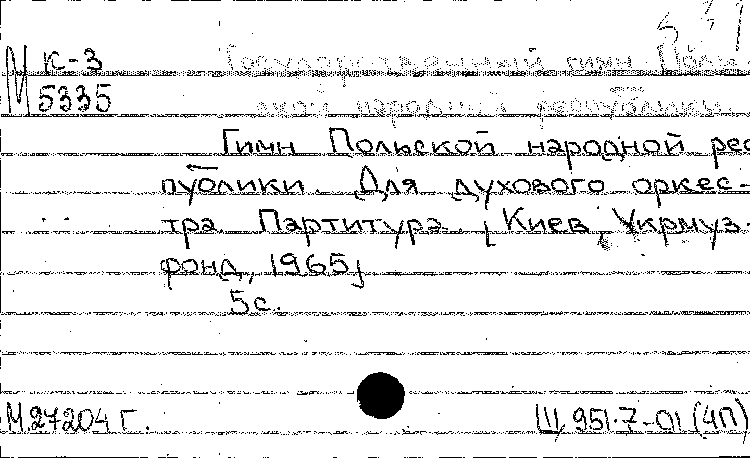 М К-3
5335
Государственный гимн Поль-
ской народной республики.
Гимн Польской народной рес-
публики. Для духового оркес-
тра. Партитура. [Киев, Укрмуз-
фонд, 1965]
5с.
М.27204 Г.
Щ 951.7-01 (4П)